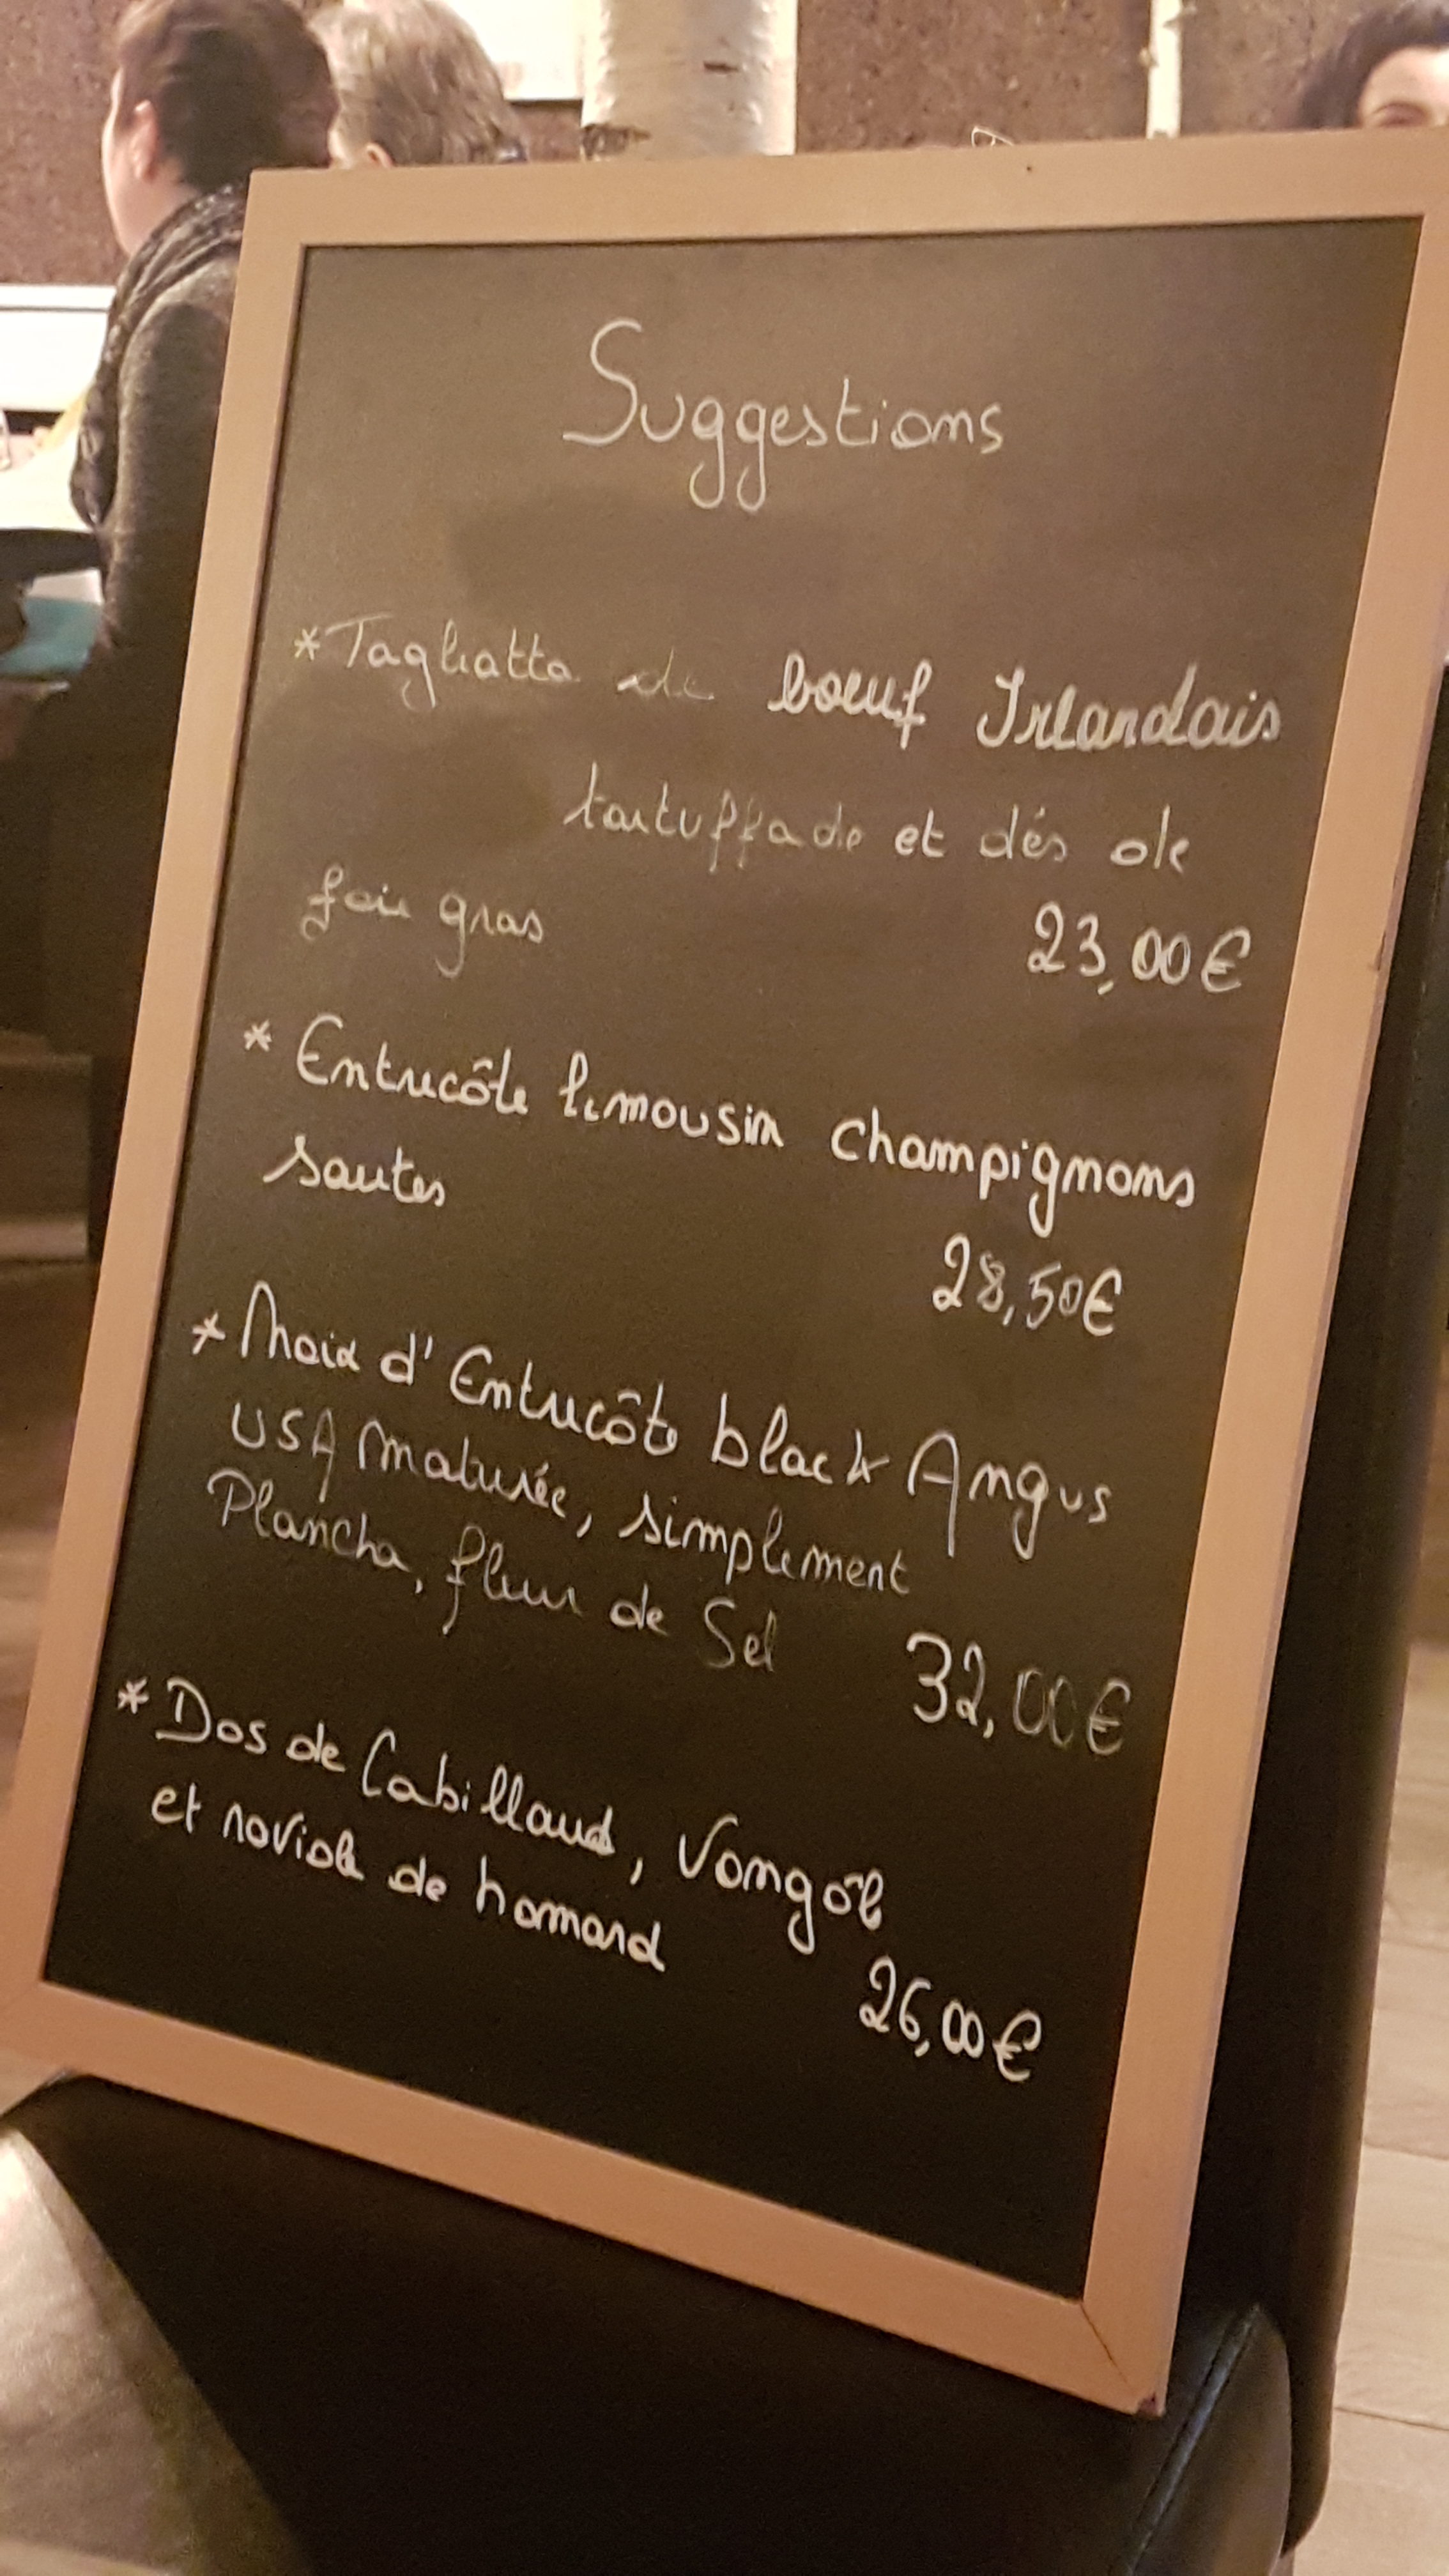 Suggestions
* Tagliatta de boeuf Irlandais
tartuffade et dés de
foie gras 23,00€
* Entrecôte limousin champignons
sautes
28,50€
* Noix d'Entrecôte black Angus
USA maturée, simplement
Plancha, fleur de Sel 32,00€
* Dos de Cabillaud, Vongôle
et raviole de homard
26,00€